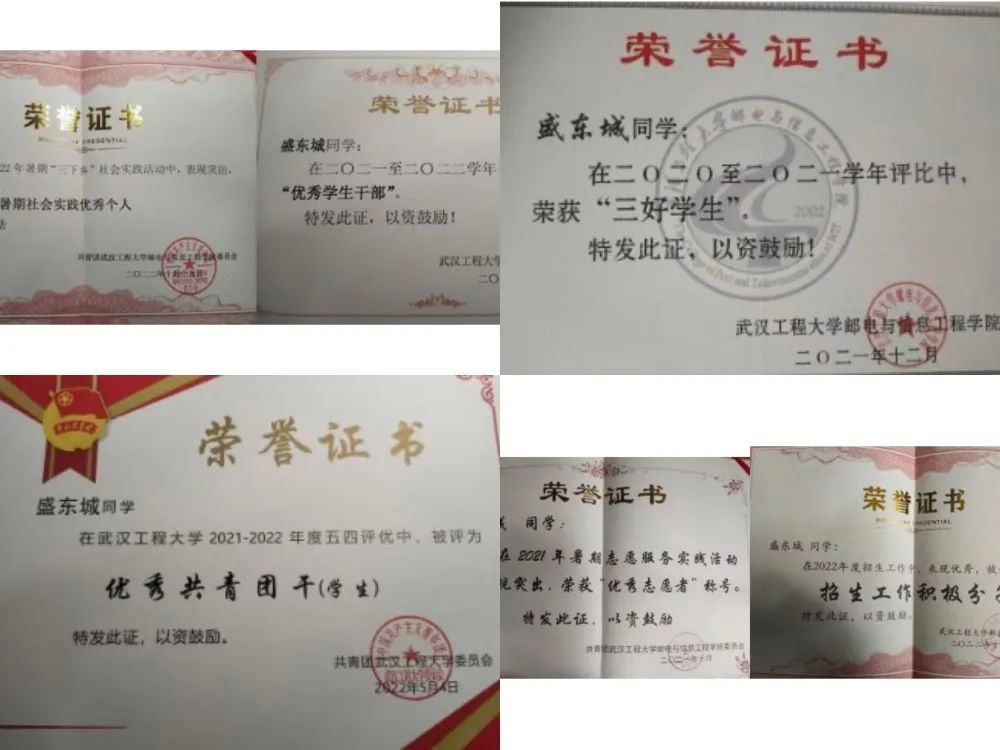 荣誉证书
HONORARY CREDENTIAL
22年暑期“三下乡”社会实践活动中，表现突出，
暑期社会实践优秀个人
励
共青团武汉工程大学邮电与信息工程学院委员会
二〇二二年十月
荣誉证书
盛东城同学：
在二〇二一至二〇二二学年
“优秀学生干部”。
特发此证，以资鼓励！
武汉工程大学
二〇
荣誉证书
盛东城同学：
在二〇二〇至二〇二一学年评比中，
荣获“三好学生”。
特发此证，以资鼓励！
2002
武汉工程大学邮电与信息工程学院
二〇二一年十二月
荣誉证书
盛东城同学
在武汉工程大学 2021-2022 年度五四评优中，被评为
优秀共青团干(学生)
特发此证，以资鼓励。
共青团武汉工程大学委员会
2022年5月4日
荣誉证书
同学：
在 2021 年暑期志愿服务实践活动
现突出，荣获“优秀志愿者”称号。
特发此证，以资鼓励
共青团武汉工程大学邮电与信息工程学院委员会
二〇二一年十月
荣誉证书
HONORARY CREDENTIAL
盛东城 同学：
在2022年度招生工作中，表现优秀，被
招生工作积极分子
特发此证，以资鼓励。
武汉工程大学
二〇二二年